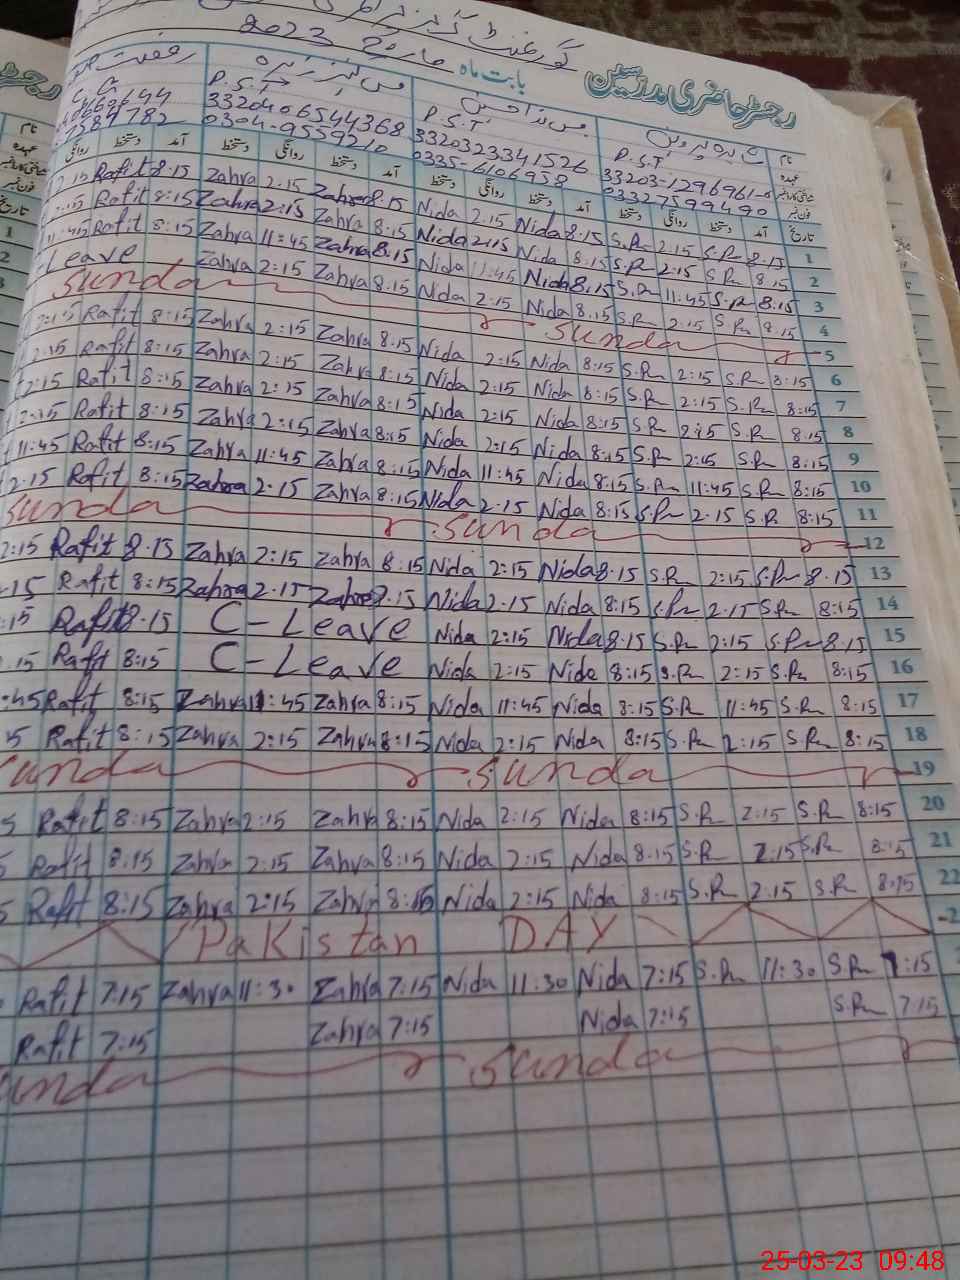 گورنمنٹ گرلز پرائمری
رجسٹر حاضری مدرسین بابت ماہ مارچ 2023
نام مس نیئر زہرہ
عہدہ P.S.T P.S.T P.S.T
33203-1296961-6 3320323341526 3320406544368
فون نمبر 03327599490 0335-6106958 0304-9559210
تاریخ آمد دستخط روانگی دستخط آمد دستخط روانگی دستخط آمد دستخط روانگی دستخط آمد دستخط روانگی
2:15 Rafit 8:15 Zahra 2:15 Zahra 8:15 Nida 2:15 Nida 8:15 S.Pn 2:15 S.Pn 8:15 1
2:15 Rafit 8:15 Zahra 2:15 Zahra 8:15 Nida 2:15 Nida 8:15 S.Pn 2:15 S.Pn 8:15 2
11:45 Rafit 8:15 Zahra 11:45 Zahra 8:15 Nida 11:45 Nida 8:15 S.Pn 11:45 S.Pn 8:15 3
Leave Zahra 2:15 Zahra 8:15 Nida 2:15 Nida 8:15 S.Pn 2:15 S.Pn 8:15 4
Sunday Sunday 5
2:15 Rafit 8:15 Zahra 2:15 Zahra 8:15 Nida 2:15 Nida 8:15 S.Pn 2:15 S.Pn 8:15 6
2:15 Rafit 8:15 Zahra 2:15 Zahra 8:15 Nida 2:15 Nida 8:15 S.Pn 2:15 S.Pn 8:15 7
2:15 Rafit 8:15 Zahra 2:15 Zahra 8:15 Nida 2:15 Nida 8:15 S.Pn 2:15 S.Pn 8:15 8
2:15 Rafit 8:15 Zahra 2:15 Zahra 8:15 Nida 2:15 Nida 8:15 S.Pn 2:15 S.Pn 8:15 9
11:45 Rafit 8:15 Zahra 11:45 Zahra 8:15 Nida 11:45 Nida 8:15 S.Pn 11:45 S.Pn 8:15 10
2:15 Rafit 8:15 Zahra 2:15 Zahra 8:15 Nida 2:15 Nida 8:15 S.Pn 2:15 S.Pn 8:15 11
Sunday Sunday 12
2:15 Rafit 8:15 Zahra 2:15 Zahra 8:15 Nida 2:15 Nida 8:15 S.Pn 2:15 S.Pn 8:15 13
:15 Rafit 8:15 Zahra 2:15 Zahra 8:15 Nida 2:15 Nida 8:15 S.Pn 2:15 S.Pn 8:15 14
:15 Rafit 8:15 C-Leave Nida 2:15 Nida 8:15 S.Pn 2:15 S.Pn 8:15 15
.15 Rafit 8:15 C-Leave Nida 2:15 Nida 8:15 S.Pn 2:15 S.Pn 8:15 16
:45 Rafit 8:15 Zahra 11:45 Zahra 8:15 Nida 11:45 Nida 8:15 S.Pn 11:45 S.Pn 8:15 17
5 Rafit 8:15 Zahra 2:15 Zahra 8:15 Nida 2:15 Nida 8:15 S.Pn 2:15 S.Pn 8:15 18
unday Sunday 19
5 Rafit 8:15 Zahra 2:15 Zahra 8:15 Nida 2:15 Nida 8:15 S.Pn 2:15 S.Pn 8:15 20
5 Rafit 8:15 Zahra 2:15 Zahra 8:15 Nida 2:15 Nida 8:15 S.Pn 2:15 S.Pn 8:15 21
5 Rafit 8:15 Zahra 2:15 Zahra 8:15 Nida 2:15 Nida 8:15 S.Pn 2:15 S.Pn 8:15 22
Pakistan DAY 2
Rafit 7:15 Zahra 11:30 Zahra 7:15 Nida 11:30 Nida 7:15 S.Pn 11:30 S.Pn 7:15
Rafit 7:15 Zahra 7:15 Nida 7:15 S.Pn 7:15
unday Sunday
25-03-23 09:48